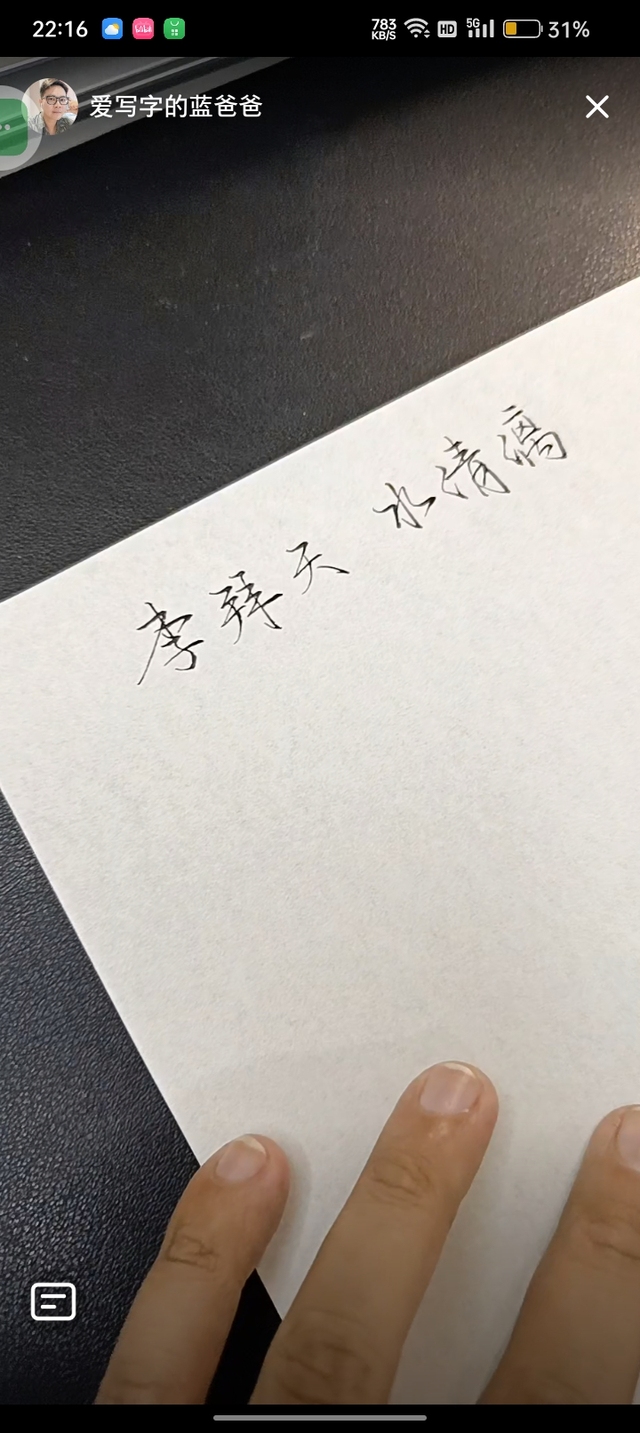 22:16 783 KB/S HD 5G 31%
爱写字的蓝爸爸
李拜天 水清漓